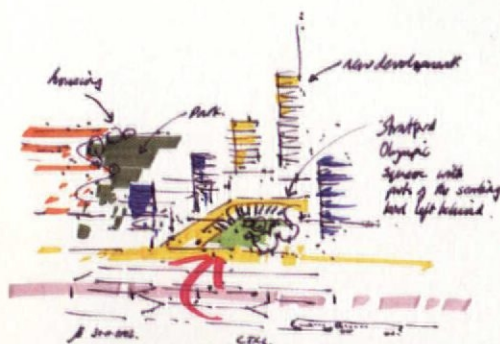 housing
park.
New development
Stratford
Olympic
square with
parts of the
bed left behind
CTRL